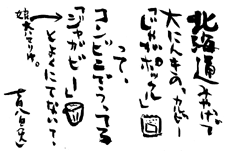 北海道みやげで
大にんきの、カルビー
「じゃがポックル」
って、
コンビニでうってる
「ジャガビー」
とよくにてないで、
娘太てりゅ。